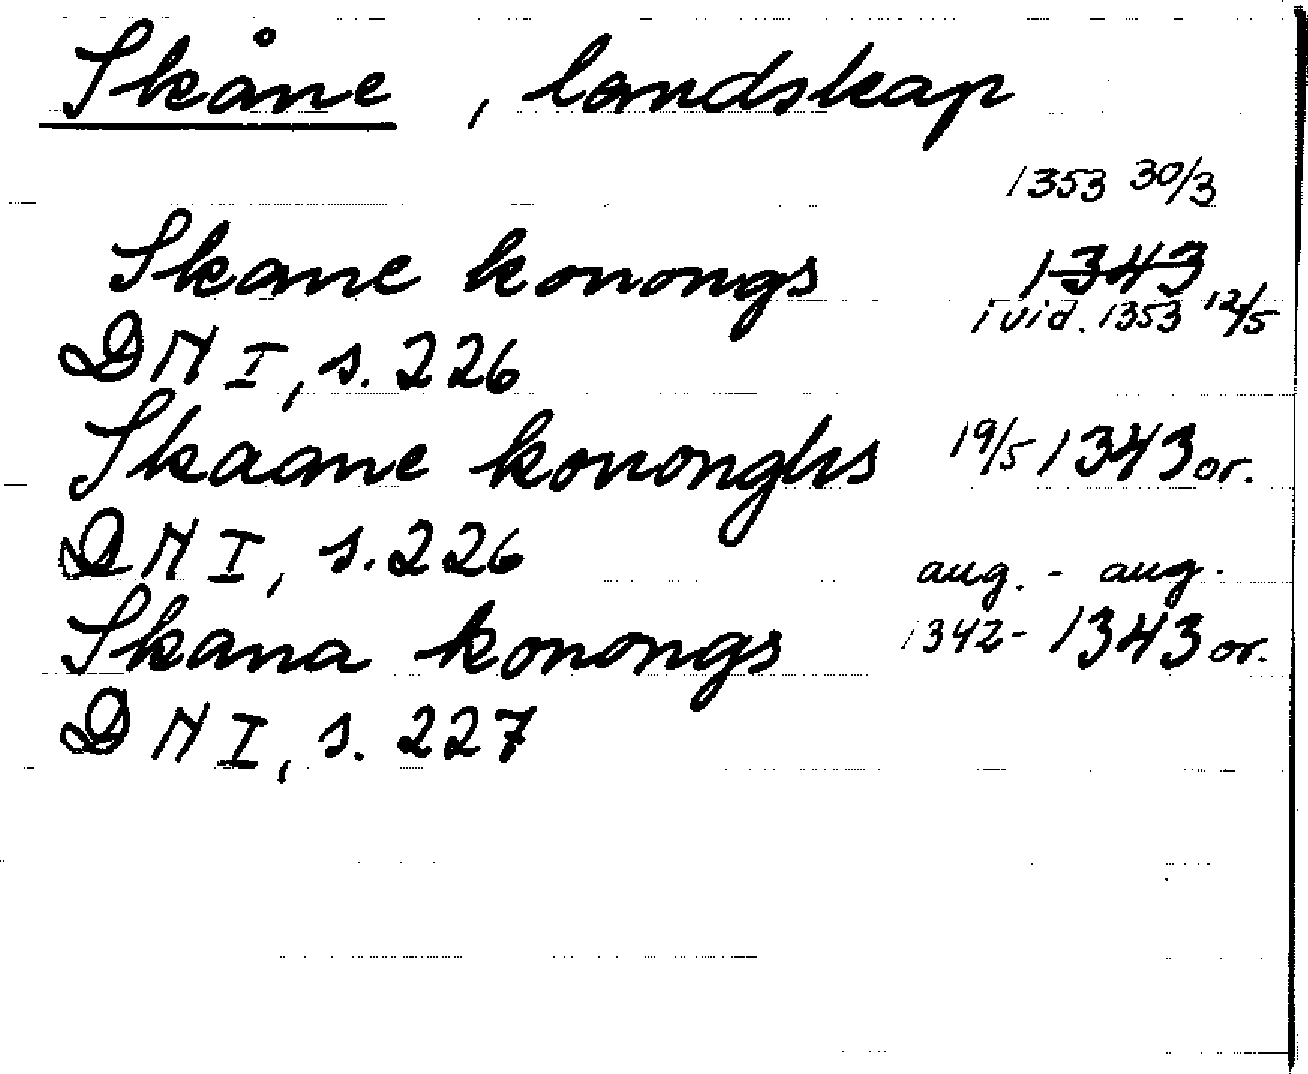 Skåne, landskap
1353 30/3
Skane konongs 1343
i vid. 1353 12/5
DN I, s. 226
Skaane kononghs 19/5 1343 or.
DN I, s. 226
aug. - aug.
Skana konongs 1342- 1343 or.
DN I, s. 227